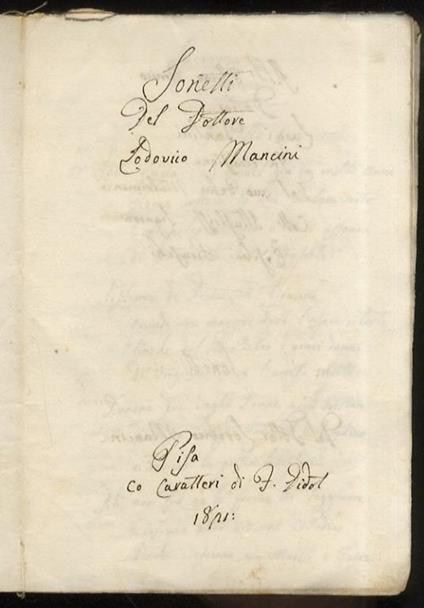 Sonetti
Del Dottore
Lodovico Mancini
Pisa
co caratteri di F. Didot